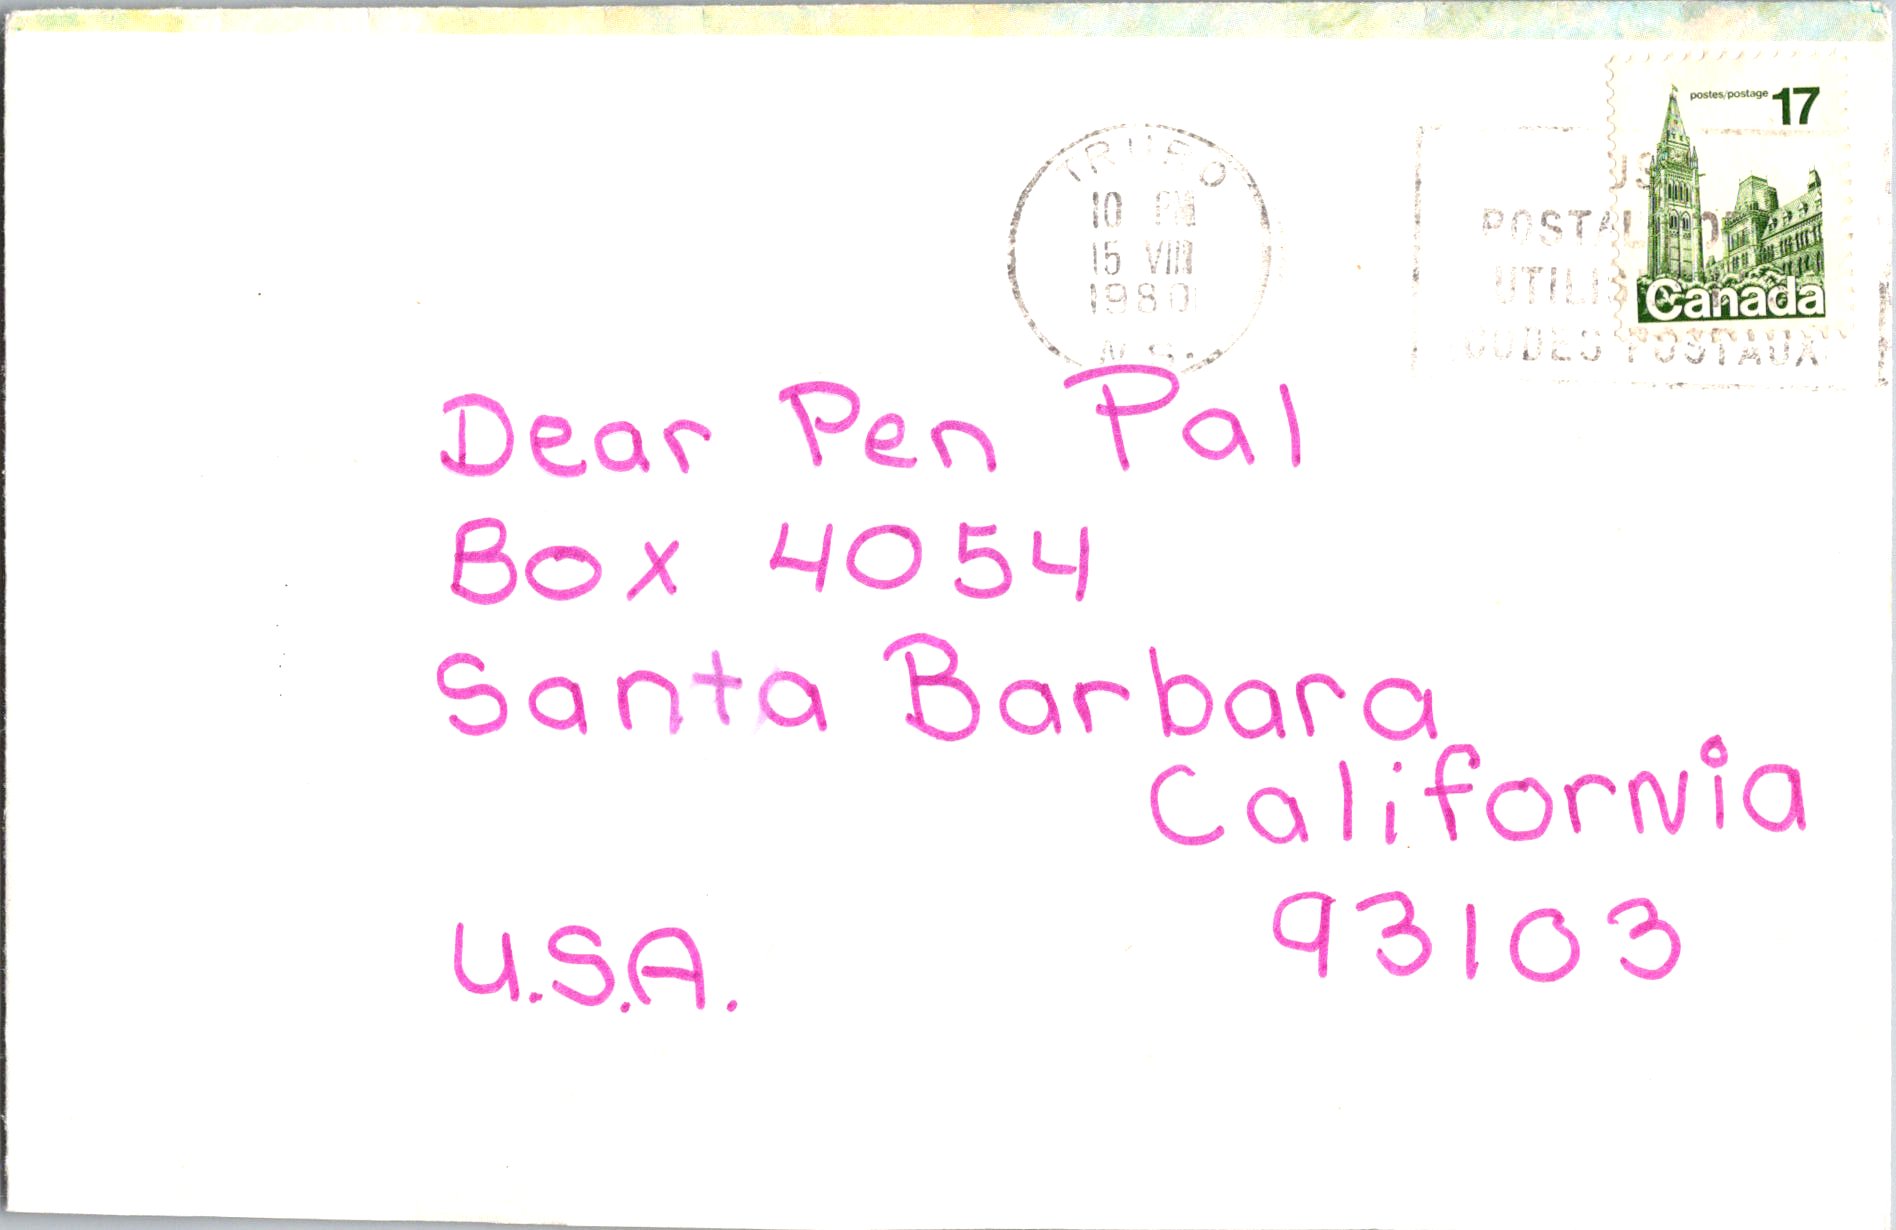 postes/postage 17
Canada
TRURO
10 PM
15 VIII
1980
N.S.
POSTAL
CODES POSTAUX
Dear Pen Pal
Box 4054
Santa Barbara
California
93103
U.S.A.